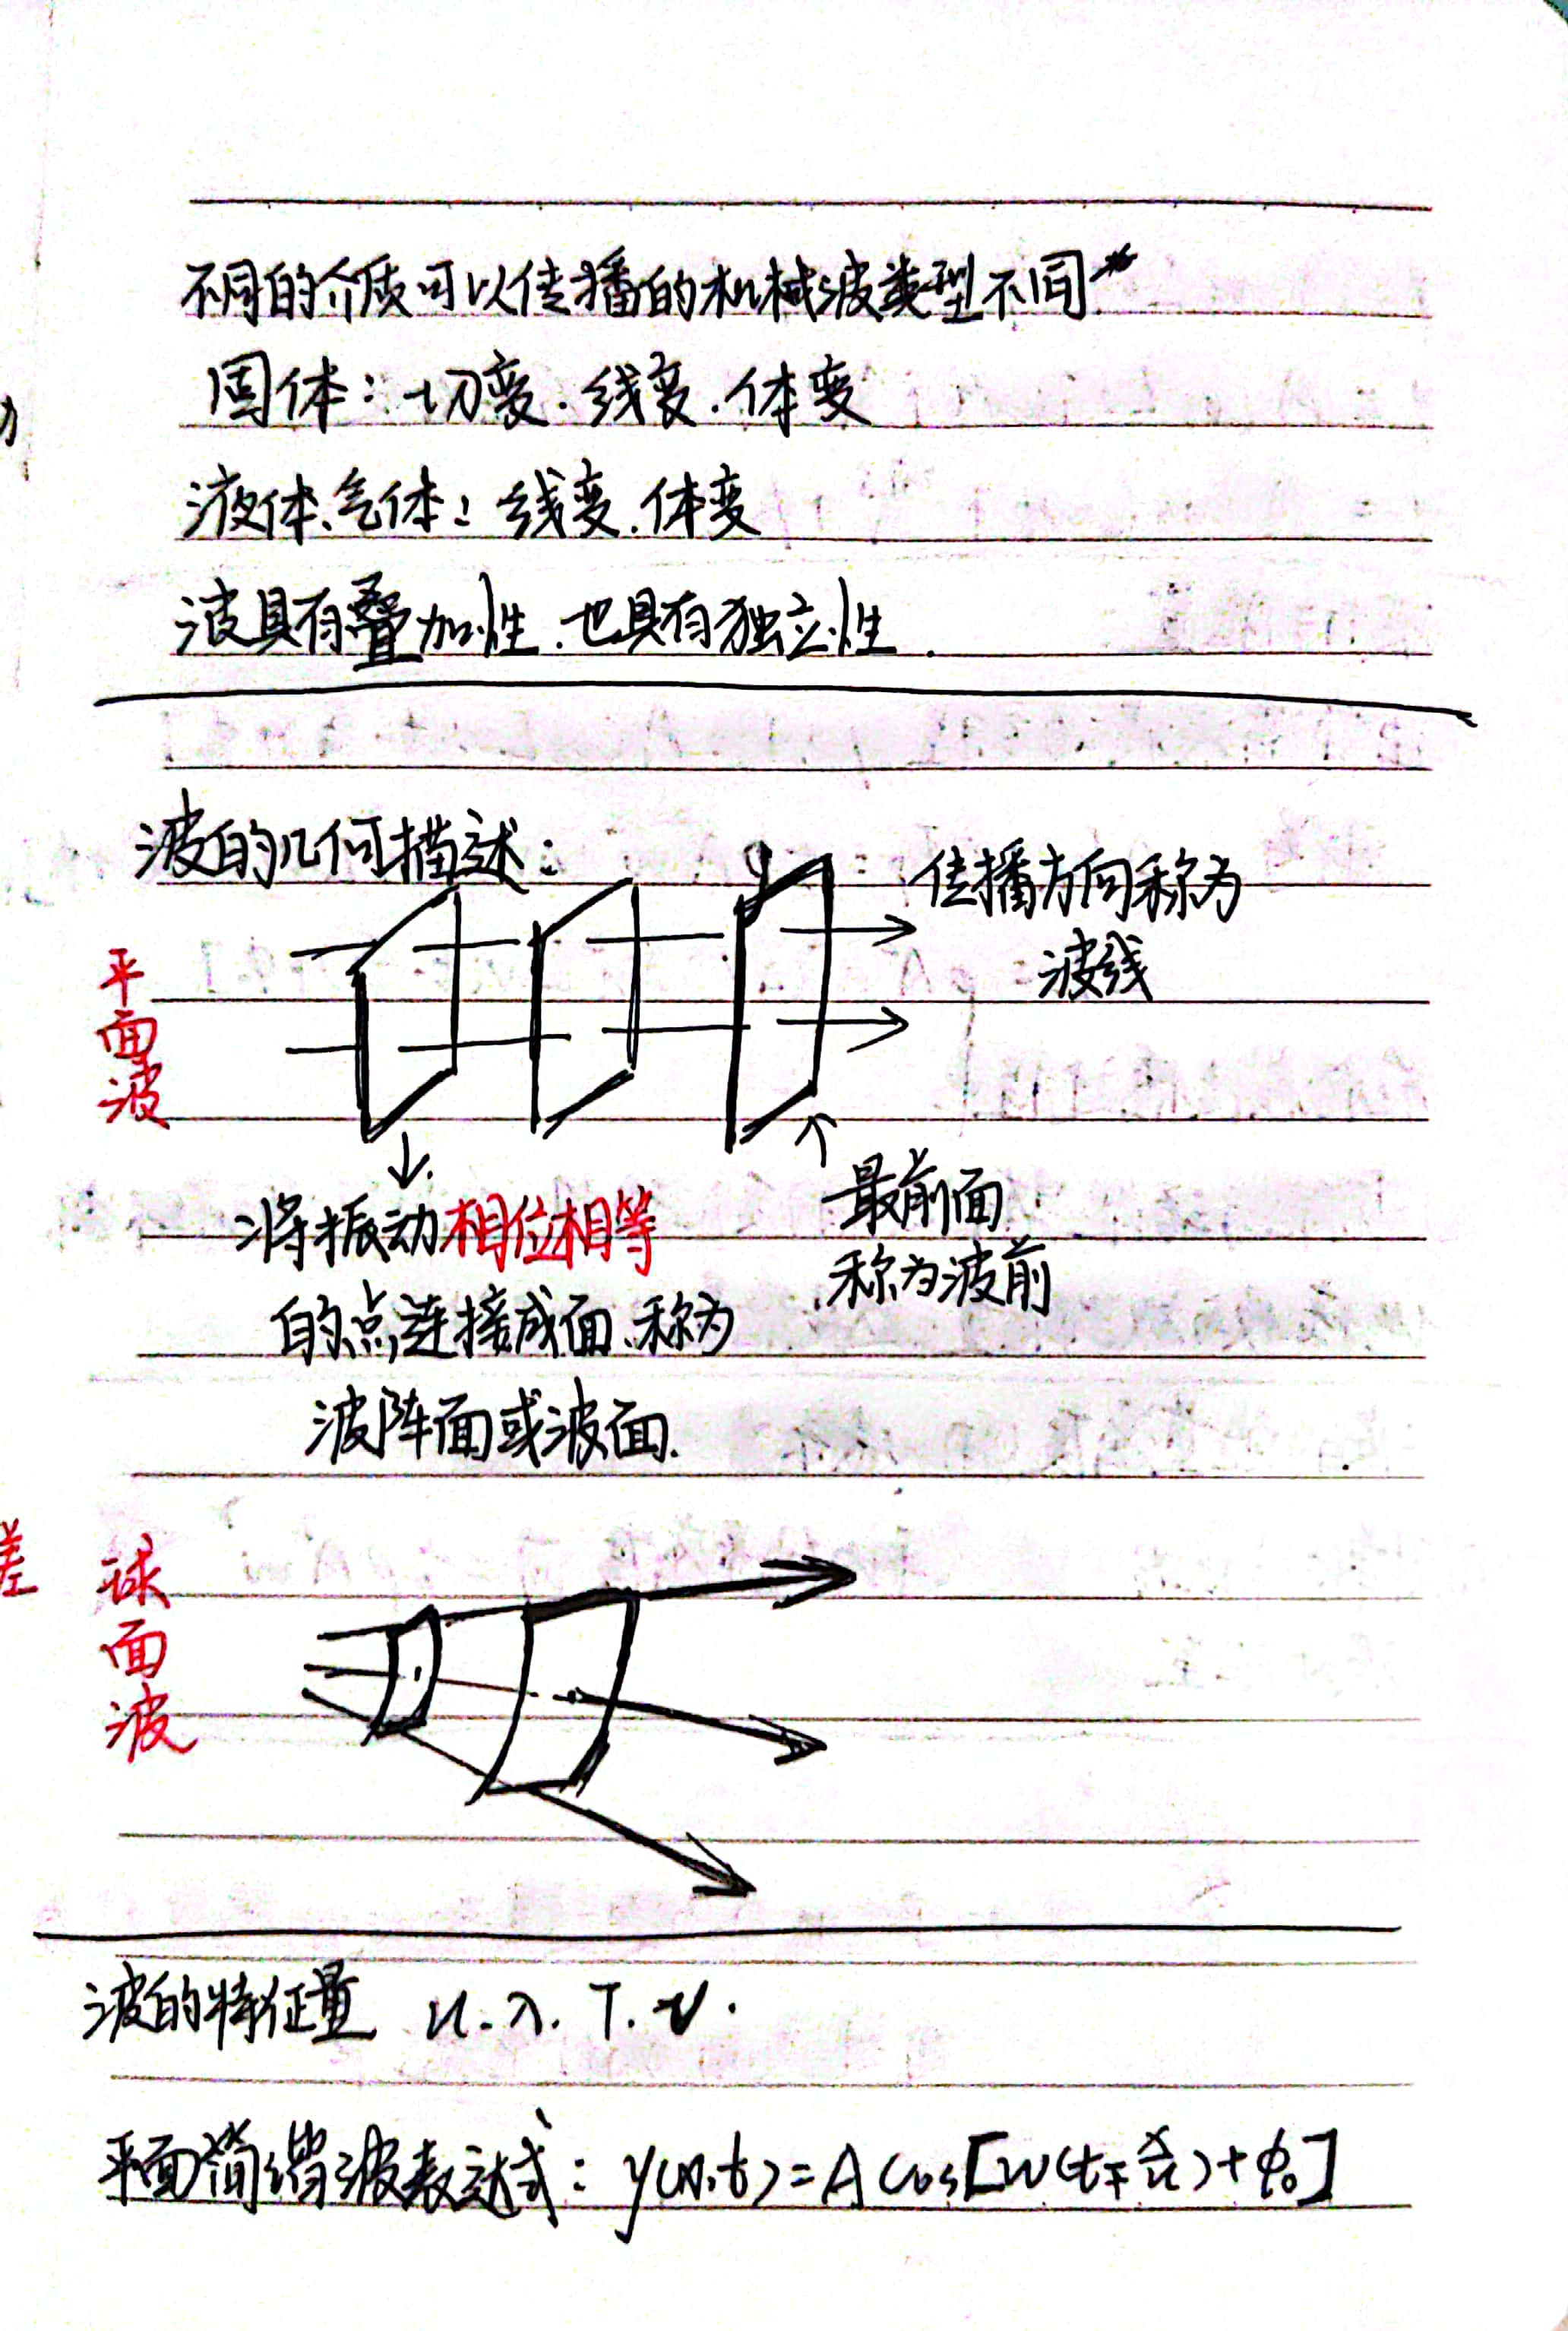 不同的介质可以传播的机械波类型不同*
固体：切变.线变.体变
液体、气体：线变.体变
波具有叠加性.也具有独立性.
波的几何描述：
传播方向称为
波线
平面波
将振动相位相等
的点连接成面、称为
波阵面或波面.
最前面
称为波前
差
球面波
波的特征量 u.λ.T.ν.
平面简谐波表达式：y(x,t)=Acos[ω(t∓x/u)+φ₀]